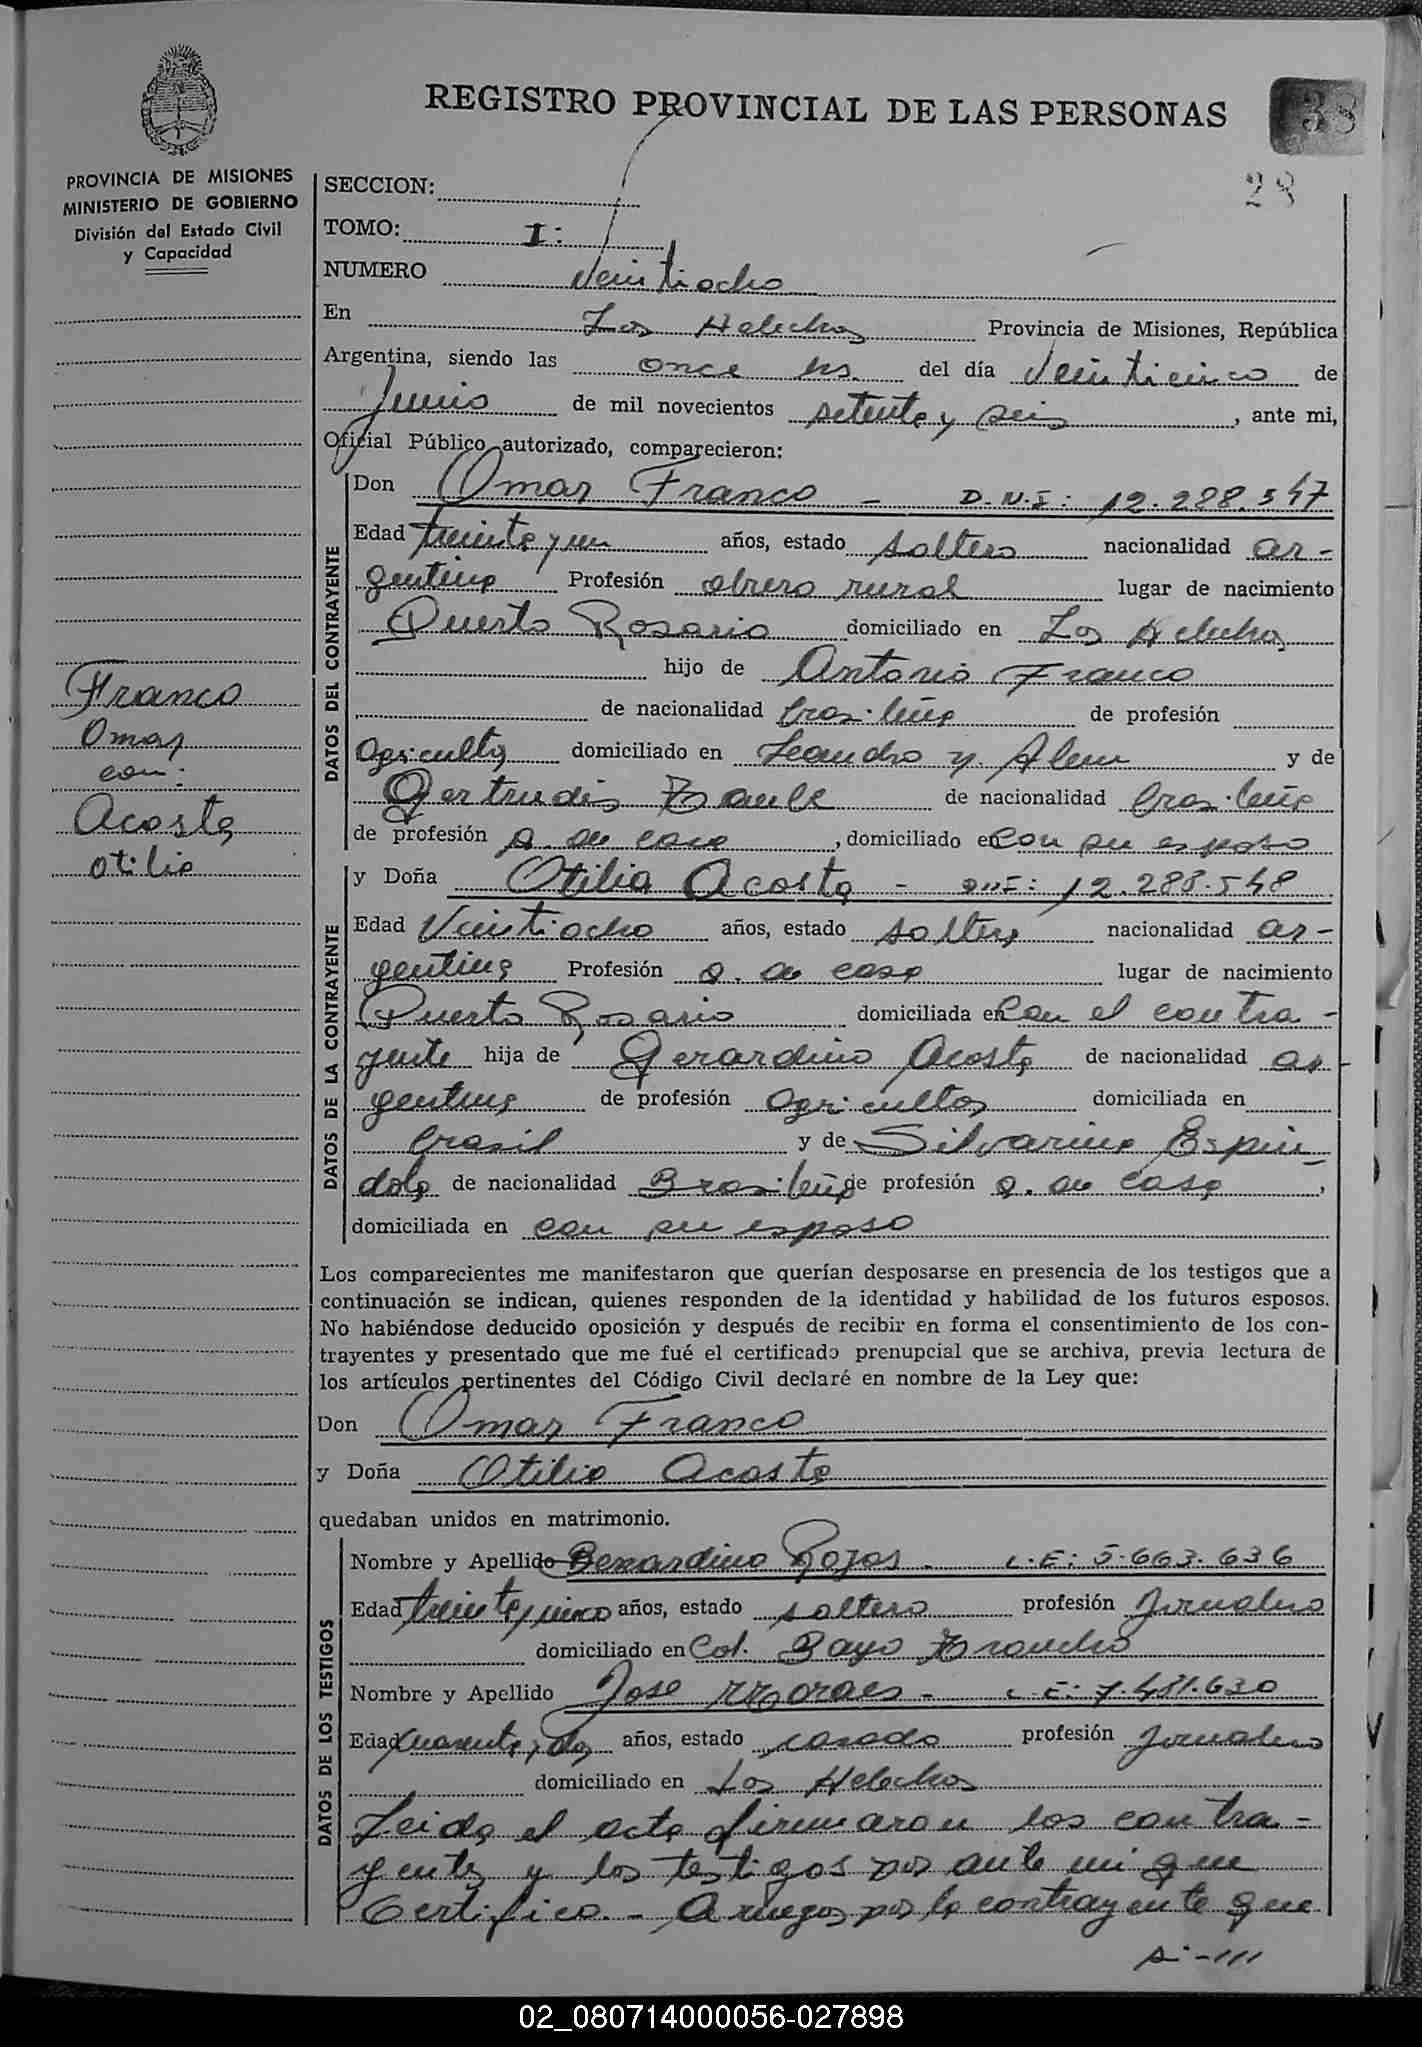 REGISTRO PROVINCIAL DE LAS PERSONAS
38
28
PROVINCIA DE MISIONES
MINISTERIO DE GOBIERNO
División del Estado Civil
y Capacidad
SECCION:
TOMO: I:
NUMERO Veintiocho
En Los Helechos Provincia de Misiones, República
Argentina, siendo las once hs. del día Veinticinco de
Junio de mil novecientos setenta y seis, ante mi,
Oficial Público autorizado, comparecieron:
DATOS DEL CONTRAYENTE
Don Omar Franco - D.N.I: 12.288.547
Edad treinta y un años, estado soltero nacionalidad ar-
gentina Profesión obrero rural lugar de nacimiento
Puerto Rosario domiciliado en Los Helechos
hijo de Antonio Franco
de nacionalidad brasileña de profesión
agricultor domiciliado en Leandro N. Alem y de
Gertrudis de nacionalidad brasileña
de profesión q. de casa, domiciliado en con su esposo
Franco
Omar
con:
Acosta
Otilia
DATOS DE LA CONTRAYENTE
y Doña Otilia Acosta - DNI: 12.288.548
Edad Veintiocho años, estado soltera nacionalidad ar-
gentina Profesión q. de casa lugar de nacimiento
Puerto Rosario domiciliada en con el contra-
yente hija de Gerardino Acosta de nacionalidad ar-
gentina de profesión agricultor domiciliada en
brasil y de Silvarina Espin-
dola de nacionalidad Brasileña de profesión q. de casa,
domiciliada en con su esposo
Los comparecientes me manifestaron que querían desposarse en presencia de los testigos que a
continuación se indican, quienes responden de la identidad y habilidad de los futuros esposos.
No habiéndose deducido oposición y después de recibir en forma el consentimiento de los con-
trayentes y presentado que me fué el certificado prenupcial que se archiva, previa lectura de
los artículos pertinentes del Código Civil declaré en nombre de la Ley que:
Don Omar Franco
y Doña Otilia Acosta
quedaban unidos en matrimonio.
DATOS DE LOS TESTIGOS
Nombre y Apellido Berardino Rojas - L.E: 5.663.636
Edad treinta y cinco años, estado soltero profesión Jornalero
domiciliado en Col. Bayo Troncho
Nombre y Apellido Jose Moraes - L.E: 7.481.630
Edad cuarenta y dos años, estado casado profesión Jornalero
domiciliado en Los Helechos
Leida el acta firmaron los contra-
yentes y los testigos por ante mi que
Certifico. - A ruegos por la contrayente que
s.-///
02_080714000056-027898